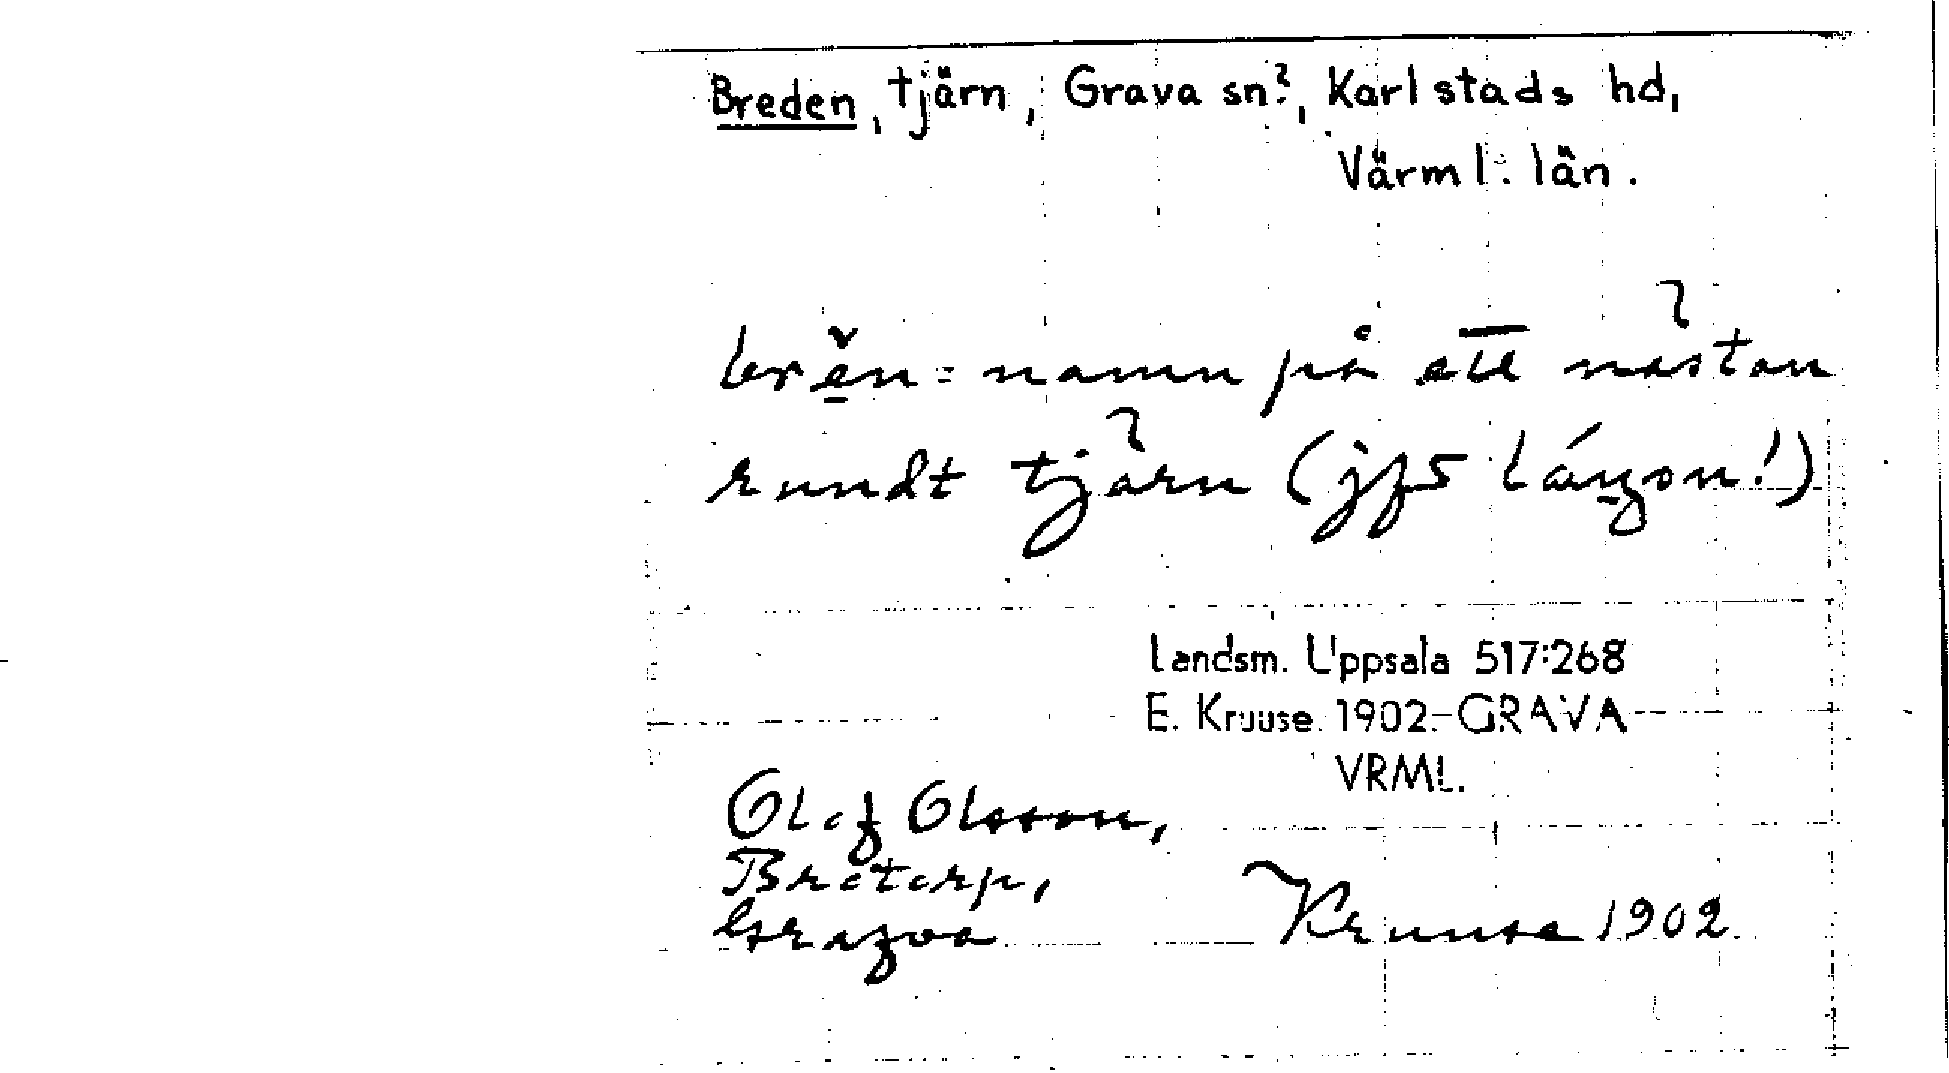 Breden, tjärn, Grava sn?, Karlstads hd,
Värml. län.
brĕn = namn på ett nästan
rundt tjärn (jfr lángon!)
Landsm. Uppsala 517:268
E. Kruuse. 1902. GRAVA
VRML.
Olof Olsson,
Brotorp,
Grafva
Kruuse 1902